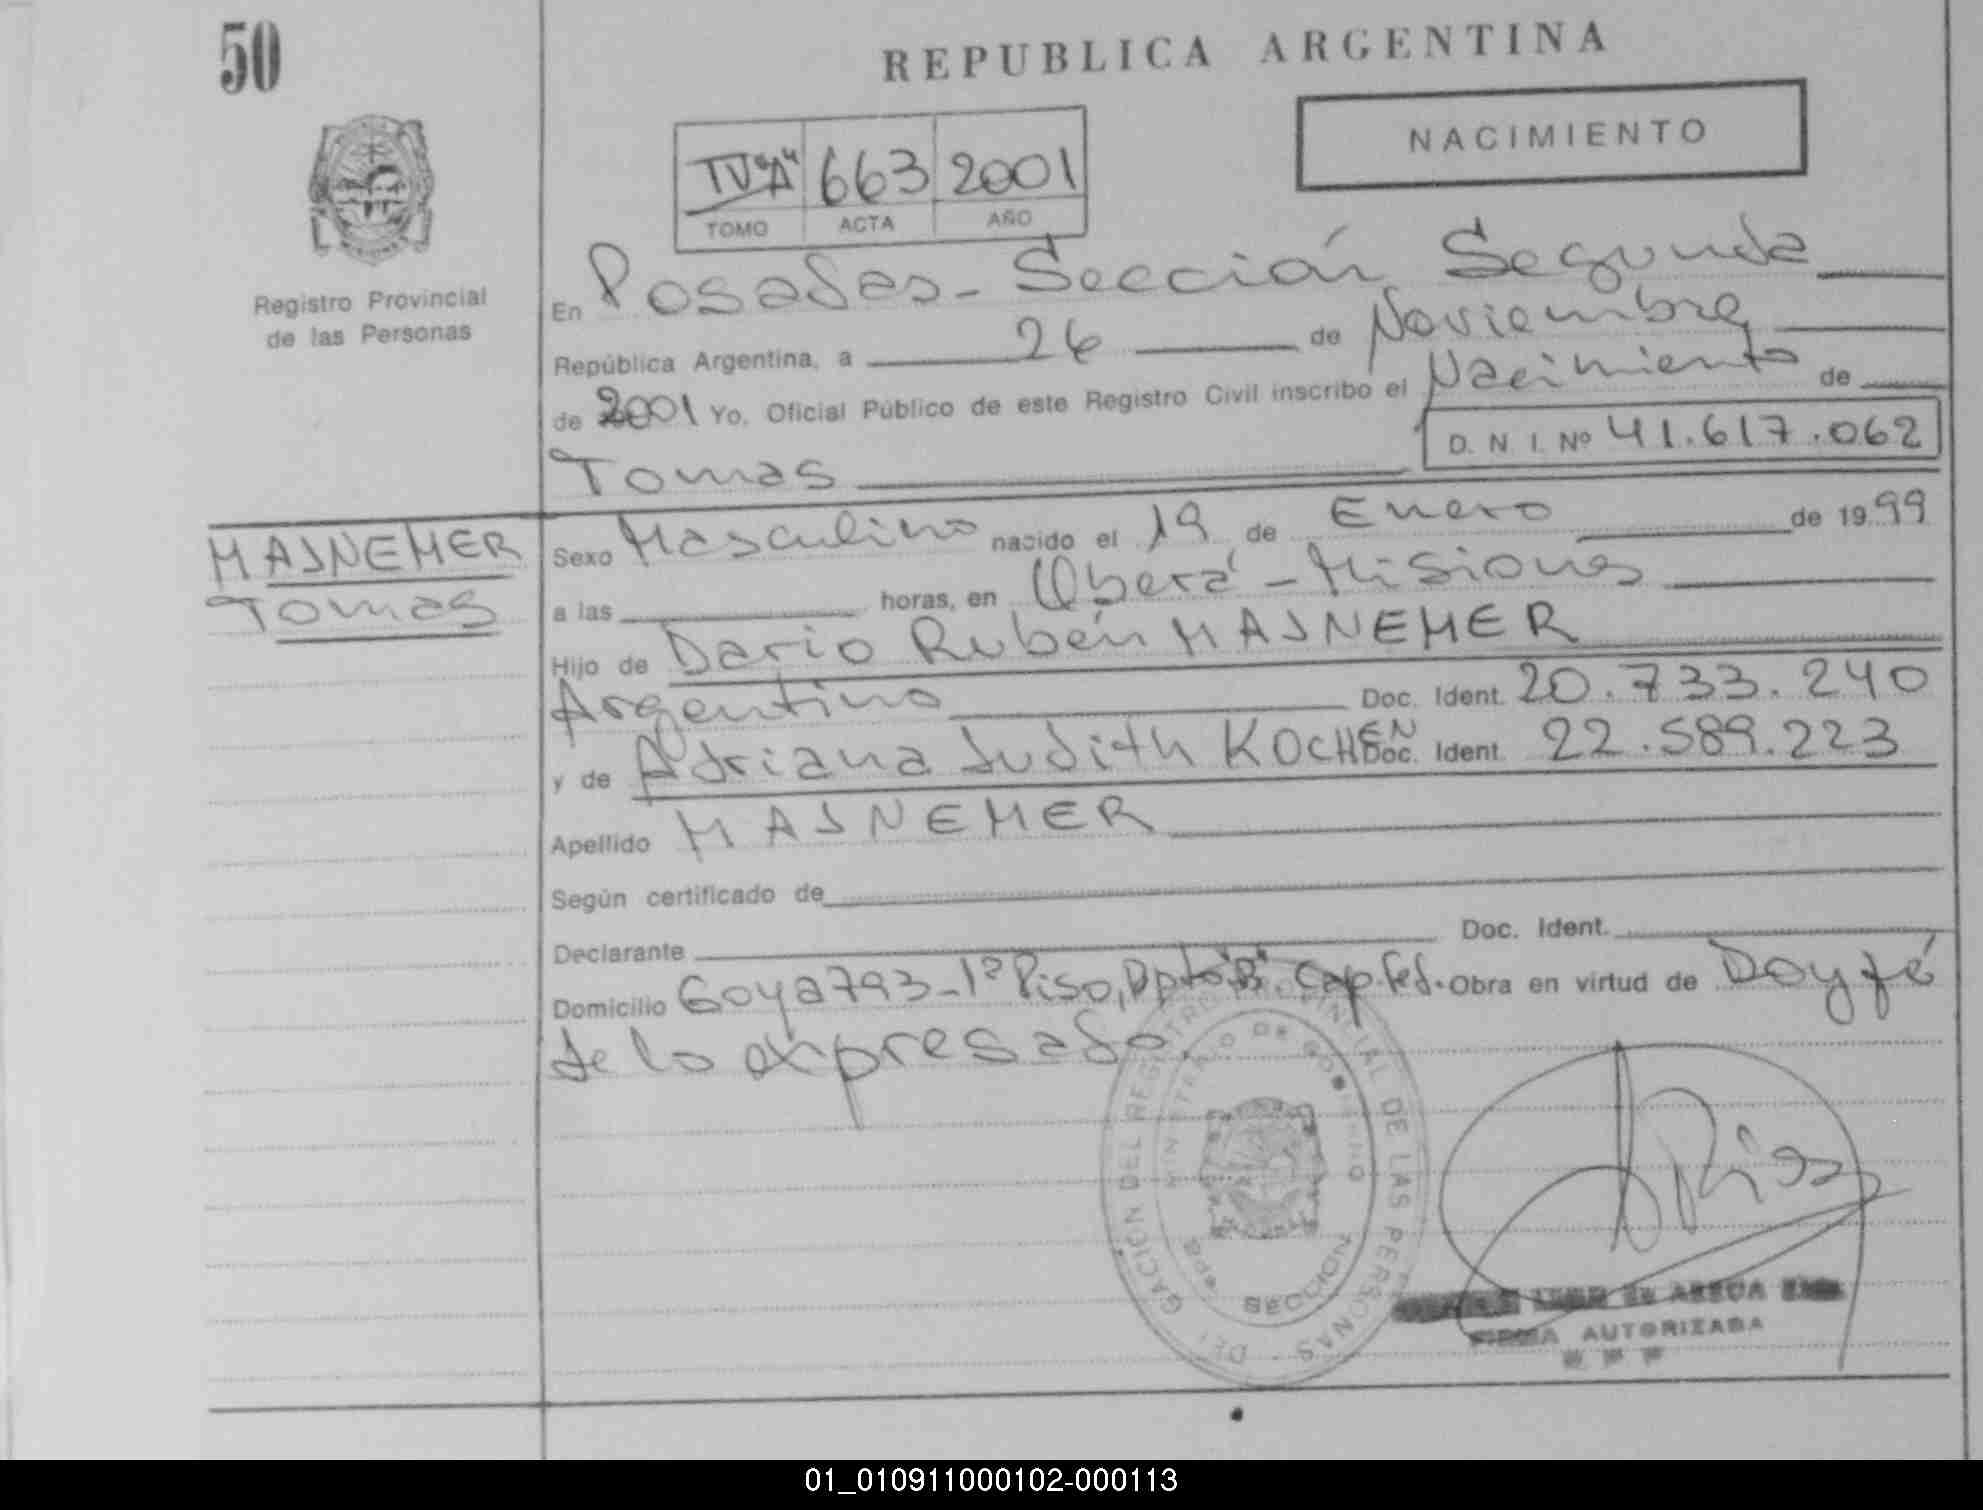 50
REPUBLICA ARGENTINA
NACIMIENTO
IV"A" 663 2001
TOMO ACTA AÑO
Registro Provincial
de las Personas
En Posadas - Sección Segunda
República Argentina, a 26 de Noviembre
de 2001 Yo, Oficial Público de este Registro Civil inscribo el Nacimiento de
D. N. I. Nº 41.617.062
Tomas
MAJNEMER
Tomas
Sexo Masculino nacido el 19 de Enero de 1999
a las horas, en Oberá - Misiones
Hijo de Dario Rubén MAJNEMER
Argentino Doc. Ident. 20.733.240
y de Adriana Judith KOCHEN Doc. Ident. 22.589.223
Apellido MAJNEMER
Según certificado de
Declarante Doc. Ident.
Domicilio Goya 793 - 1º Piso, Dpto "B" Cap. Fed. Obra en virtud de Doy fé
de lo expresado.
DELEGACION DEL REGISTRO PROVINCIAL DE LAS PERSONAS
MINISTERIO DE GOBIERNO
SECCION
FIRMA AUTORIZADA
01_010911000102-000113